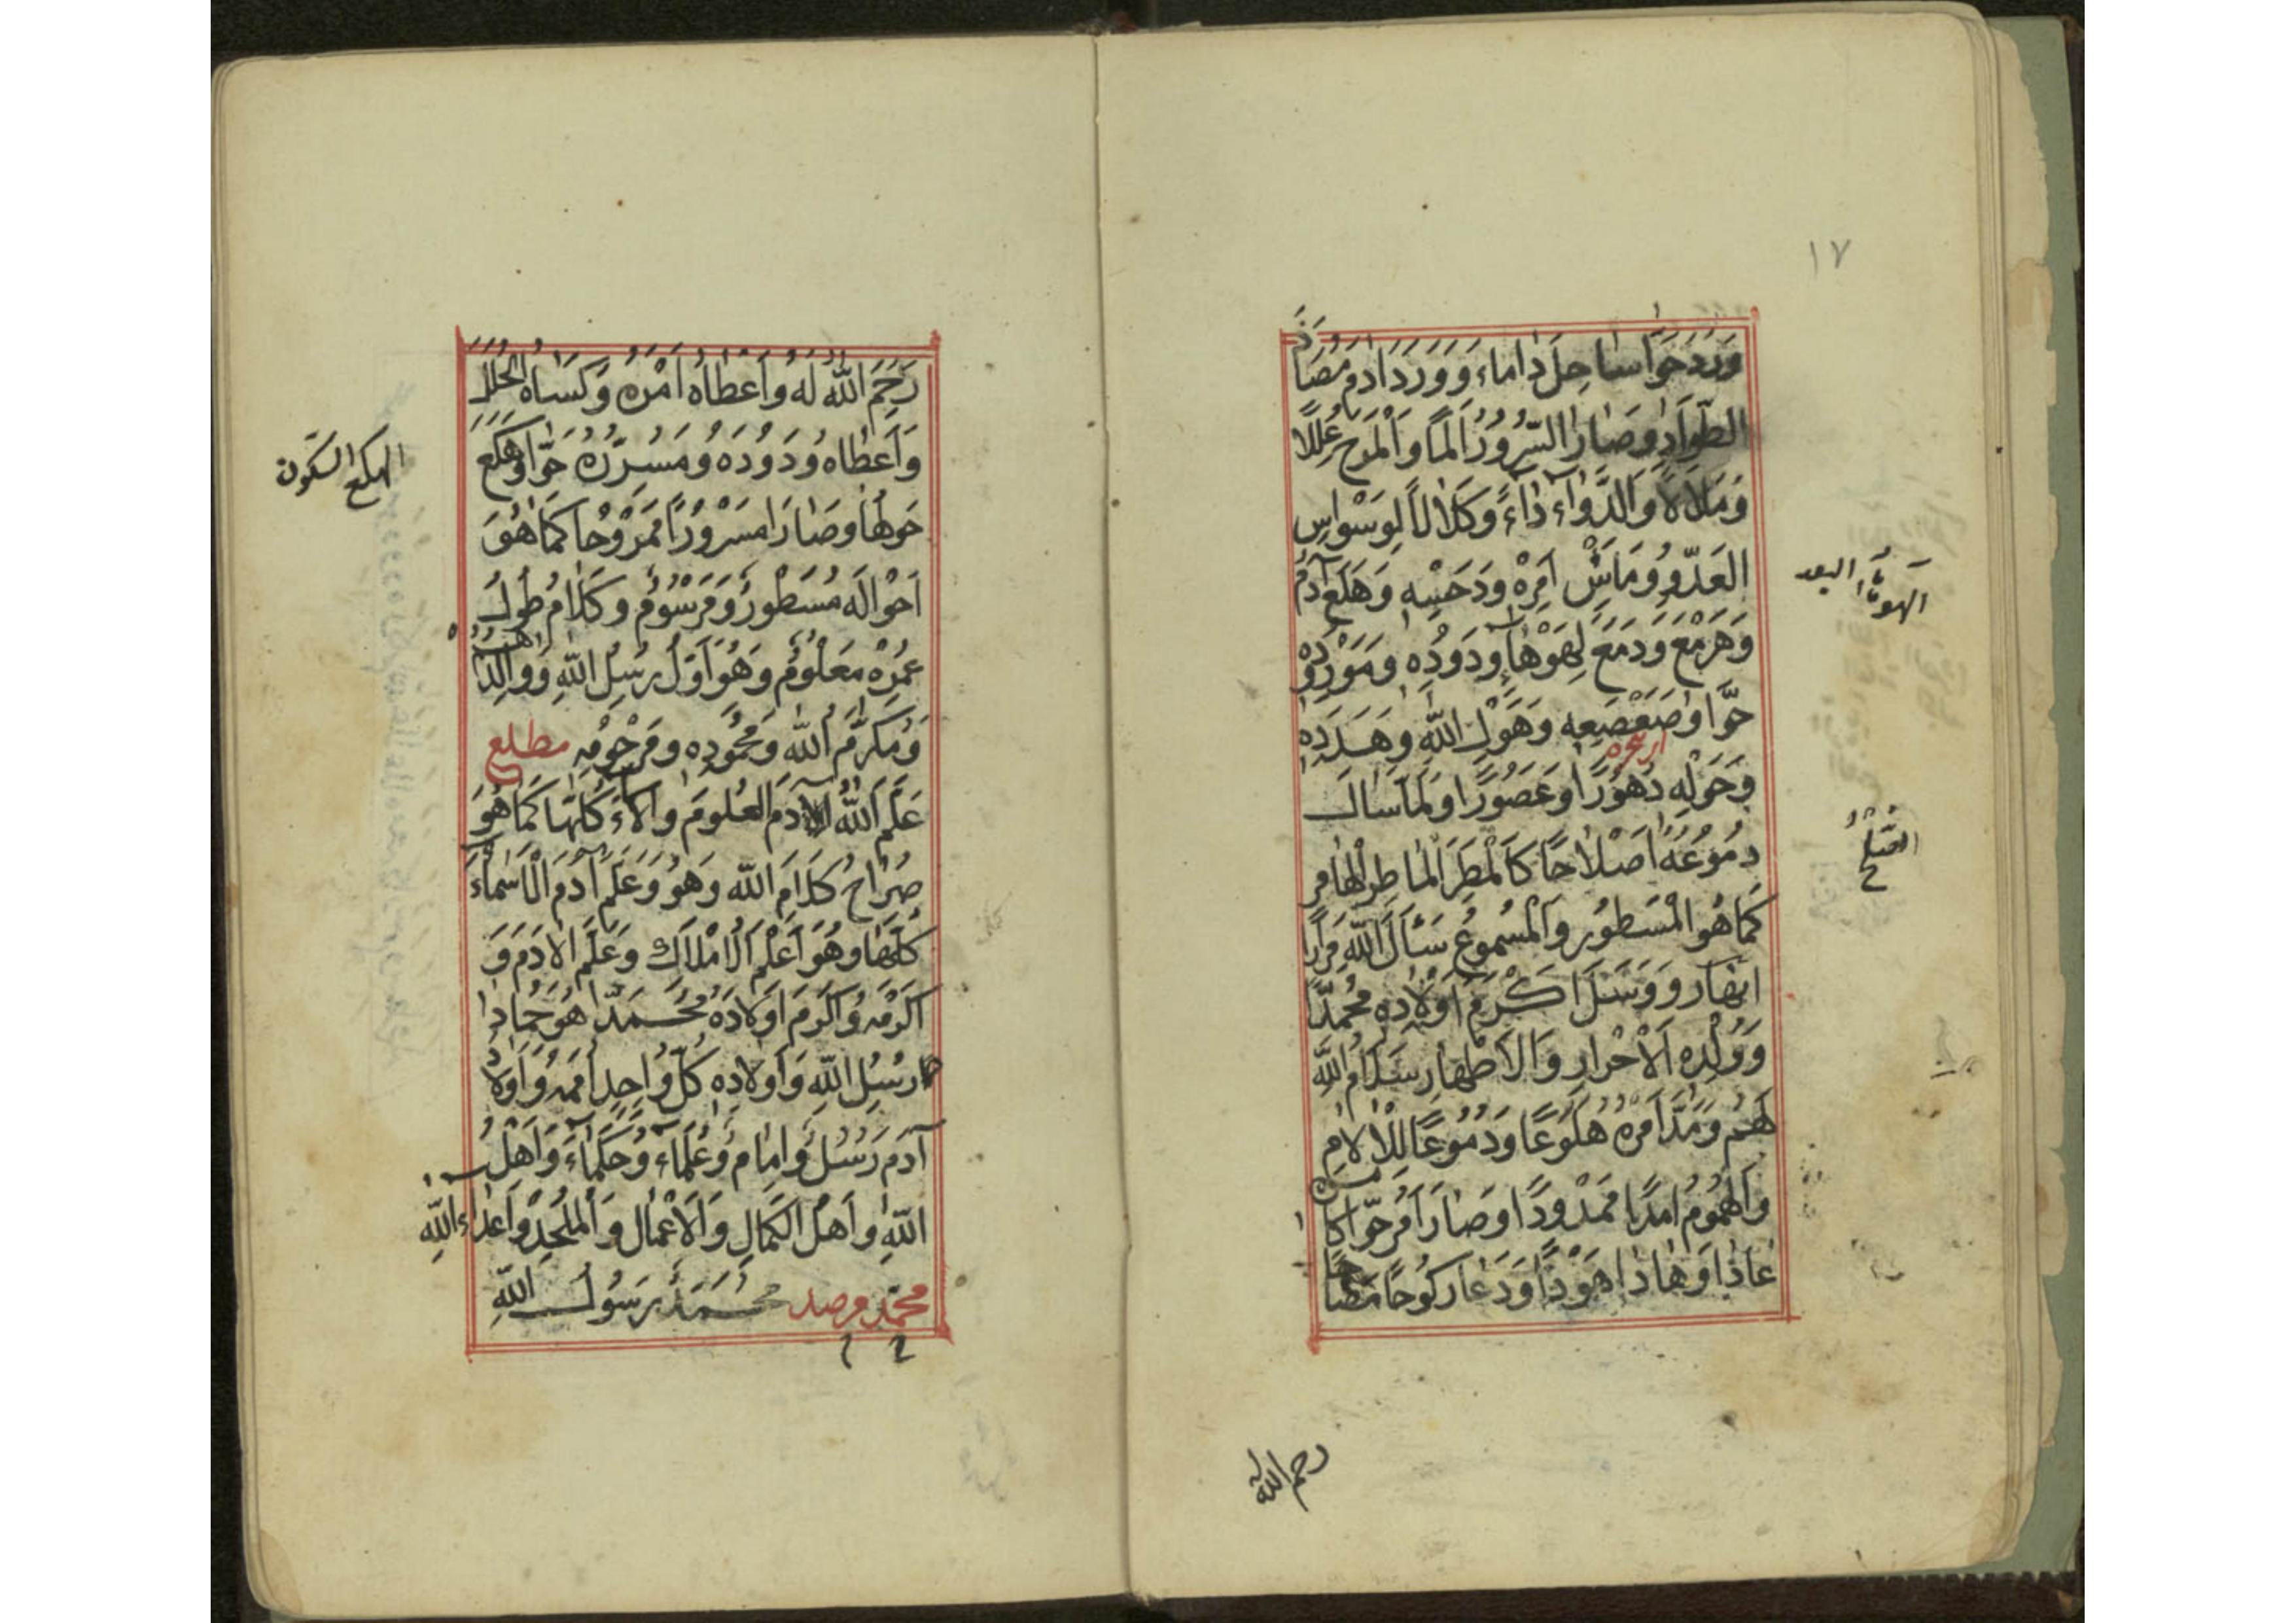 ١٧
وَرَدَ حَوَّا ساحِلَ دَاماء وَوَرَدَ آدم مَصَاد
الطَّوَادِ وصَارَ السُّرُورُ أَلَمًا وَالْمَرَحُ عِلَلًا
وَمَلَالًا وَالدَّوَاءُ دَاءً وَكَلَالًا لِوَسْوَاسِ
العَدُوِّ وَمَاسَ أَمْرُهُ وَدَحْسِهِ وَهَلَعَ آدَمُ
وَهَرْمَعَ وَدَمَعَ لِهَوْهَاءِ وَدُودِهِ وَمَوْرِدِهِ
حَوَّا وصَعْصَعِهِ وَهَوْلِ اللّٰهِ وَهَدَدِهِ
وَحَوْلِهِ دُهُورًا وَعُصُورًا وَلَمَّا سَالَ
دُمُوعُهُ أَصْلَاحًا كَالْمَطَرِ الْمَاطِرِ الْهَامِرِ
كَمَا هُوَ الْمَسْطُورُ وَالْمَسْمُوعُ سَئَلَ اللّٰهَ مِرَارًا
وَوَسَّلَ أَكْرَمَ أَوْلَادِهِ مُحَمَّدًا
وَوُلْدِهِ الْأَحْرَارِ وَالْأَطْهَارِ سَلَامُ اللّٰهِ
لَهُمْ وَمَدَّ أَمْرُهُ هُلُوعًا وَدُمُوعًا لِلْآلَامِ
وَالْهُمُومِ أَمَدًا مَمْدُودًا وَصَارَ أَمْرُ حَوَّا كَا
عَادَا وَهَادَا هَوْدًا وَدَعَا رَكُوحًا
الهوهاء البعد
الصلح
رحم اللّٰه
رَحِمَ اللّٰهُ لَهُ وَأَعْطَاهُ أَمْرَهُ وَكَسَاهُ الْحُلَلَ
وَأَعْطَاهُ وَدُودَهُ وَمَسَرَّهُ حَوَّا وَهَكَعَ
حَوْلَهَا وَصَارَا مَسْرُورًا مَمْرُوحًا كَمَا هُوَ
أَحْوَالُهُ مَسْطُورٌ وَمَرْسُومٌ وَكَلَامُ طُولِ
عُمْرِهِ مَعْلُومٌ وَهُوَ أَوَّلُ رُسُلِ اللّٰهِ وَوَالِدُهُمْ
وَمُكَرَّمُ اللّٰهِ وَمَحْمُودِهِ وَمَرْحُومِهِ مطلع
عَلَّمَ اللّٰهُ آدَمَ الْعُلُومَ وَالْآلَاءَ كُلَّهَا كَمَا هُوَ
صُرَاحُ كَلَامِ اللّٰهِ وَهُوَ وَعَلَّمَ آدَمَ الْأَسْمَاءَ
كُلَّهَا وَهُوَ أَعْلَمُ الْأَمْلَاكِ وَعَلَّمَ الْآدَمَ وَ
أَكْرَمَهُ وَأَكْرَمَ أَوْلَادَهُ مُحَمَّدًا هُوَ
رُسُلِ اللّٰهِ وَأَوْلَادِهِ كُلُّ وَاحِدٍ أُمَمُهُ وَأَوْلَادُ
آدَمَ رُسُلٌ وَإِمَامٌ وَعُلَمَاءُ وَحُكَمَاءُ وَأَهْلُ
اللّٰهِ وَأَهْلُ الْكَمَالِ وَالْأَعْمَالِ وَالْمُلْحِدُ وَأَعْدَاءُ اللّٰهِ
محمد مرصد مُحَمَّدٌ رَسُولُ اللّٰهِ
الهكع السكون